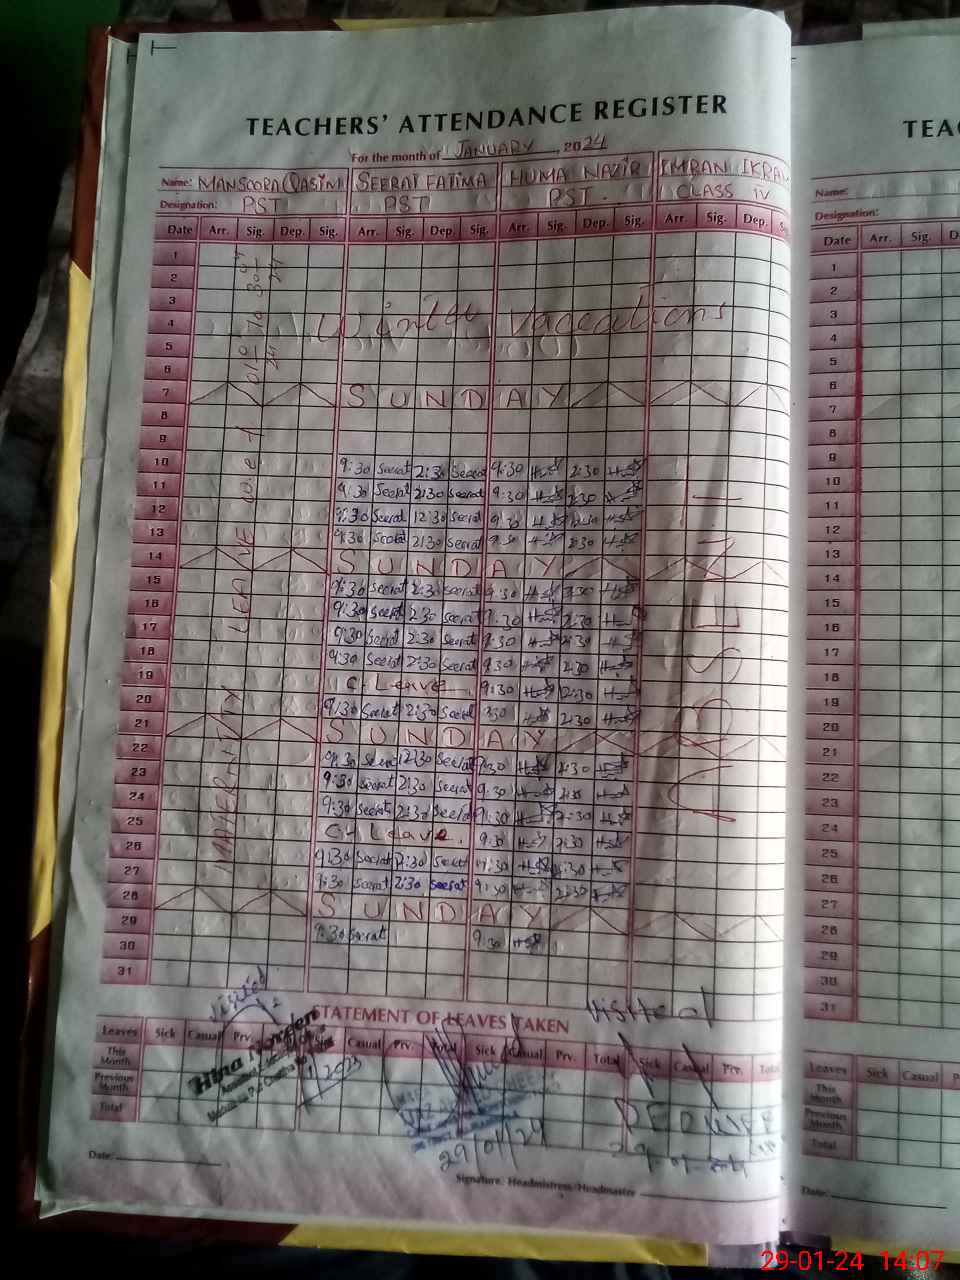 TEACHERS' ATTENDANCE REGISTER
For the month of JANUARY, 2024
Name: MANSOORA QASIM SEERAT FATIMA HUMA NAZIR IMRAN IKRA
Designation: PST PST PST. CLASS IV
Date Arr. Sig. Dep. Sig. Arr. Sig. Dep. Sig. Arr. Sig. Dep. Sig. Arr. Sig. Dep.
1
2
3
4 Winter vaccations
5
6
7 SUNDAY
8
9
10 9:30 Seerat 2:30 Seerat 9:30 2:30
11 9:30 Seerat 2:30 Seerat 9:30 2:30
12 9:30 Seerat 12:30 Seerat 9:30
13 9:30 Seerat 2:30 Seerat 9:30 2:30
14 SUNDAY
15 9:30 Seerat 2:30 Seerat 9:30 2:30
16 9:30 Seerat 2:30 Seerat 9:30 2:30
17 9:30 Seerat 2:30 Seerat 9:30 2:30
18 9:30 Seerat 2:30 Seerat 9:30 2:30
19 C-Leave 9:30 2:30
20 9:30 Seerat 2:30 Seerat 9:30 2:30
21 SUNDAY
22 9:30 Seerat 2:30 Seerat 9:30 2:30
23 9:30 Seerat 2:30 Seerat 9:30 2:30
24 9:30 Seerat 2:30 Seerat 9:30 2:30
25 C-Leave. 9:30 2:30
26 9:30 Seerat 2:30 Seerat 9:30 2:30
27 9:30 Seerat 2:30 Seerat 9:30 2:30
28 SUNDAY
29 9:30 Seerat 9:30
30
31
MATERNITY LEAVE w.e.f
ABSENT
visited
Visited
STATEMENT OF LEAVES TAKEN
Leaves Sick Casual Prv. Sick Casual Prv. Total Sick Casual Prv. Total Sick Casual Prv. Total
This Month
Previous Month
Total
29/01/24
Date:
Signature. Headmistress/Headmaster
TEA
Name:
Designation:
Date Arr. Sig.
1
2
3
4
5
6
7
8
9
10
11
12
13
14
15
16
17
18
19
20
21
22
23
24
25
26
27
28
29
30
31
Leaves Sick Casual
This Month
Previous Month
Total
Date:
29-01-24 14:07